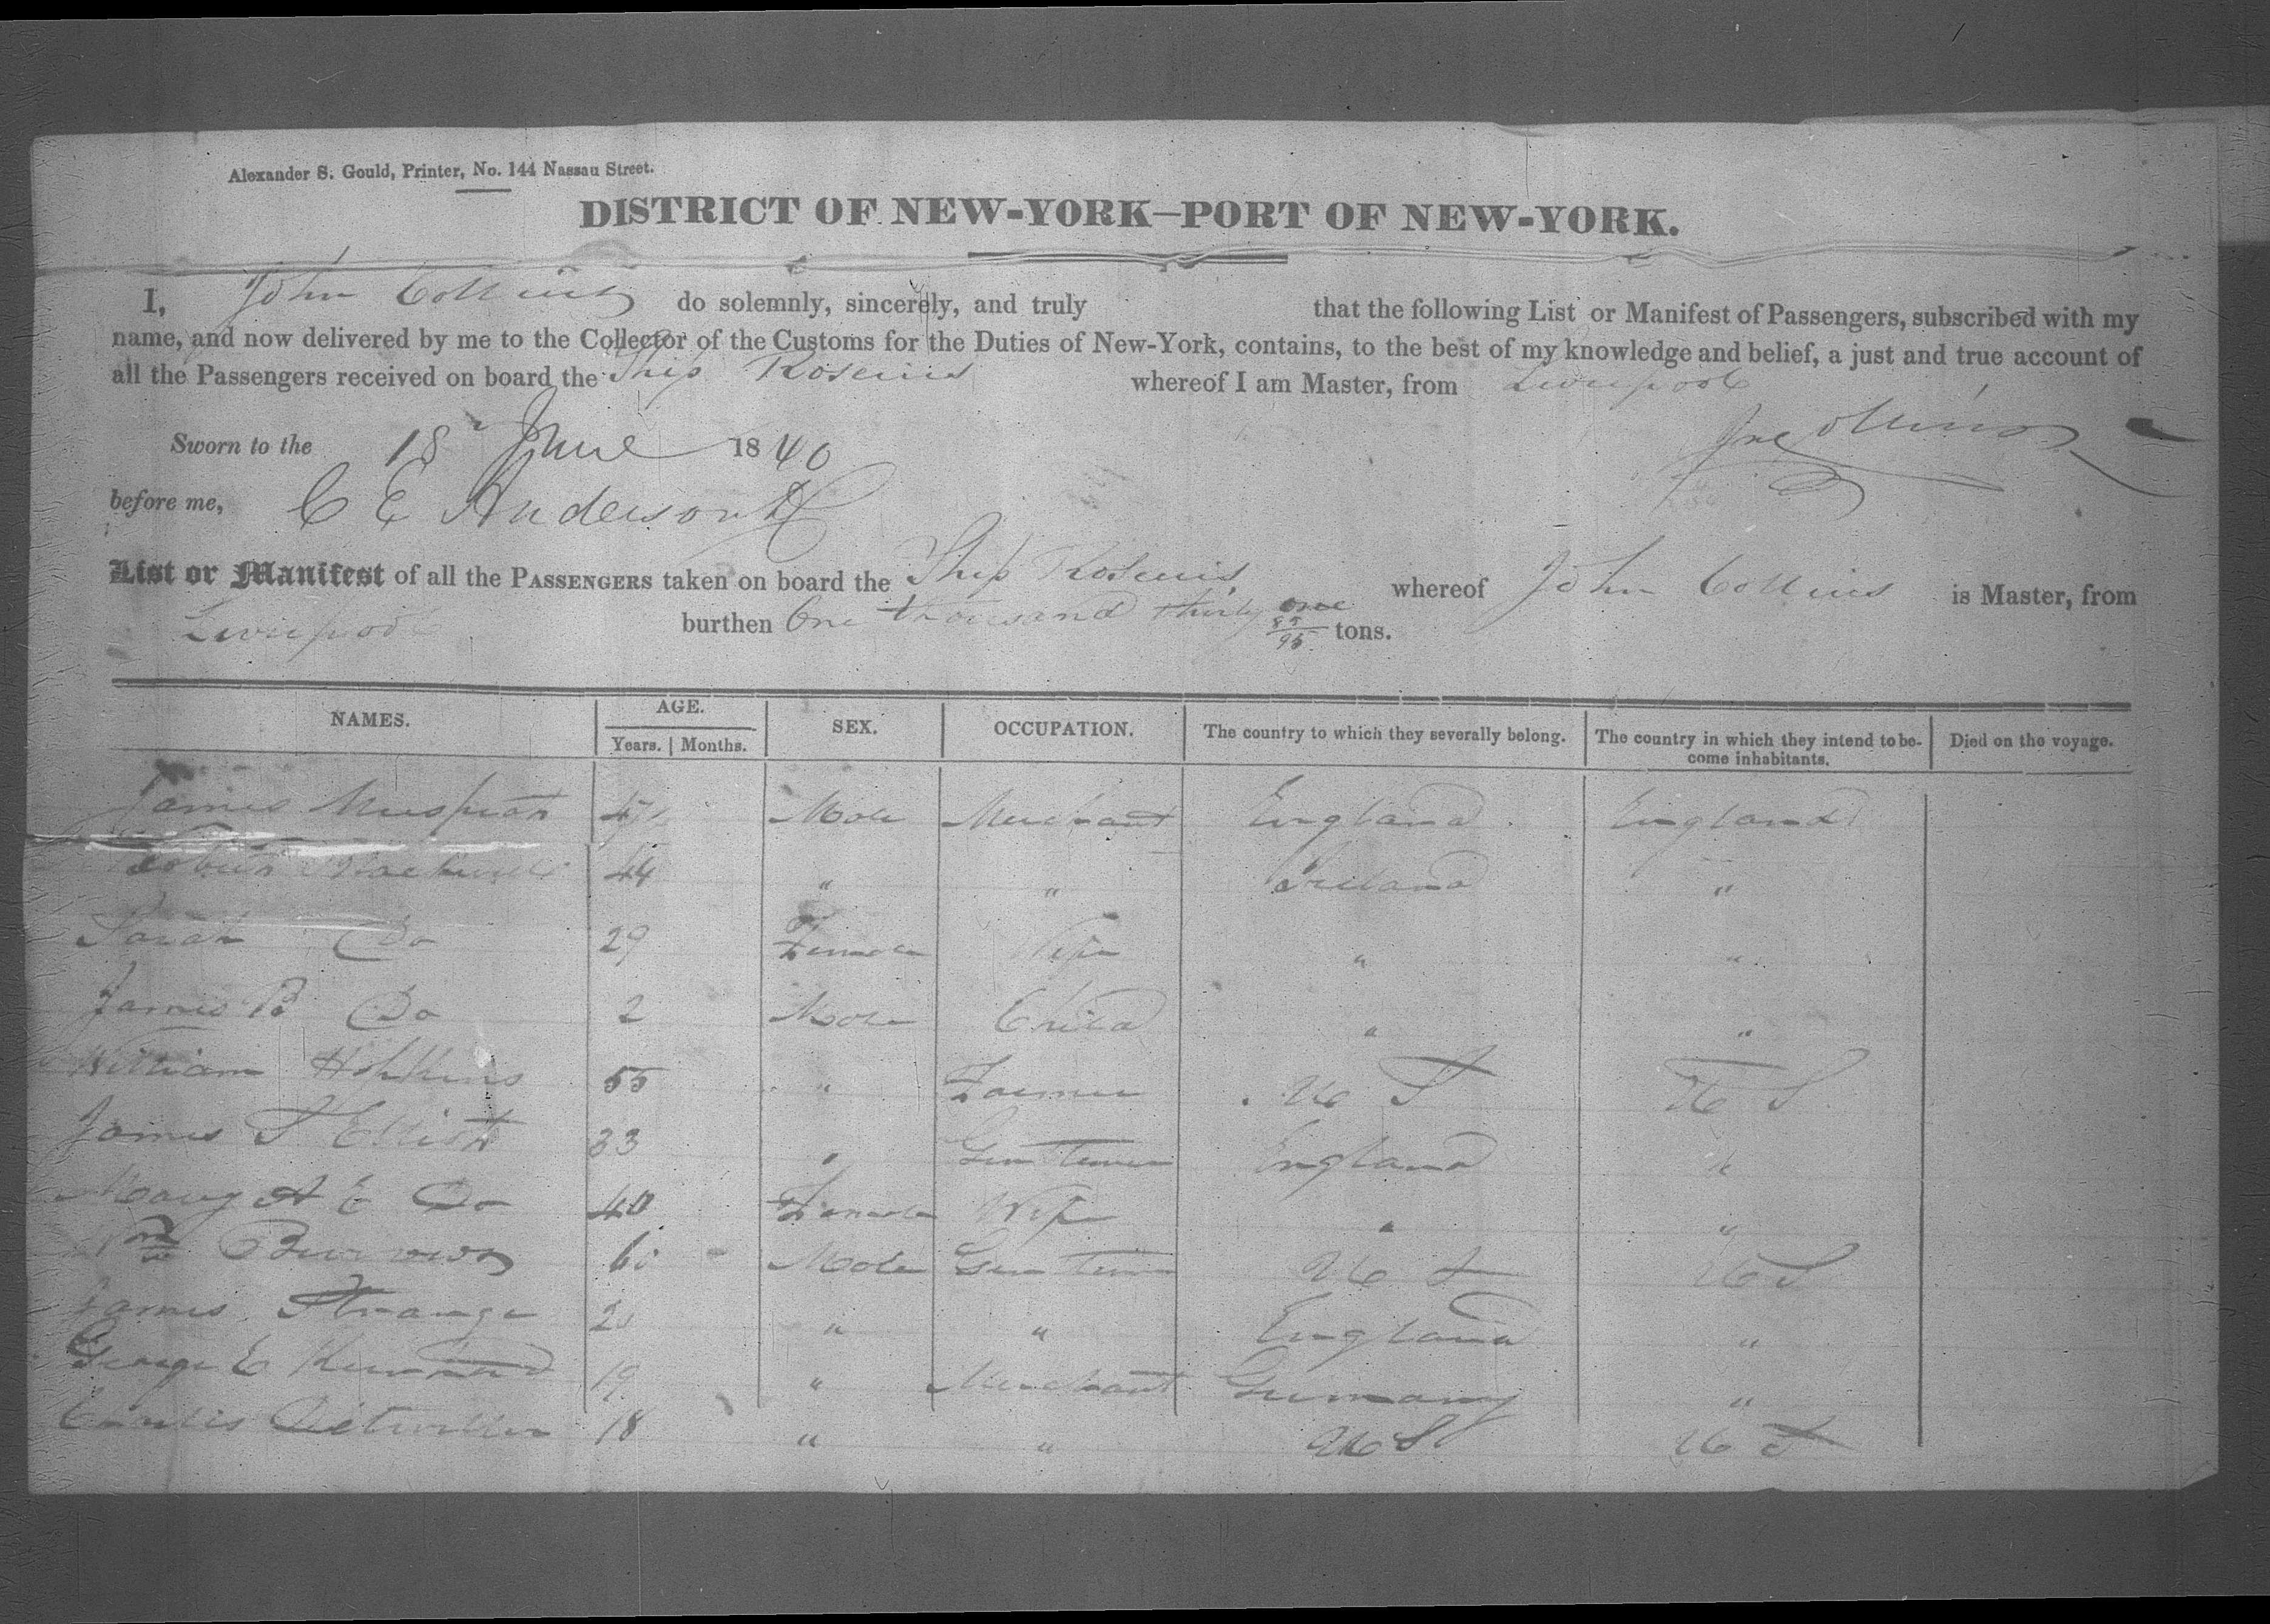 Alexander S. Gould, Printer, No. 144 Nassau Street.
DISTRICT OF NEW-YORK—PORT OF NEW-YORK.
I, John Collins do solemnly, sincerely, and truly that the following List or Manifest of Passengers, subscribed with my
name, and now delivered by me to the Collector of the Customs for the Duties of New-York, contains, to the best of my knowledge and belief, a just and true account of
all the Passengers received on board the Ship Roscius whereof I am Master, from Liverpool
Sworn to the 18 June 1840
Jno Collins
before me, C E Anderson
List or Manifest of all the PASSENGERS taken on board the Ship Roscius whereof John Collins is Master, from
Liverpool burthen One thousand thirty one 85/95 tons.
NAMES. AGE. Years. Months. SEX. OCCUPATION. The country to which they severally belong. The country in which they intend to become inhabitants. Died on the voyage.
James Muspratt Male Merchant England England
44 " " Ireland "
Sarah Do 29 Female Wife " "
James B Do 2 Male Child " "
William Hopkins 55 " Farmer U S U S
James T Elliott 33 " Gentleman England "
Mary A E Do 40 Female Wife " "
Wm Burrows Male Gentleman U S U S
James Strange " " England "
George E 19 " Merchant Germany "
18 " " U S U S